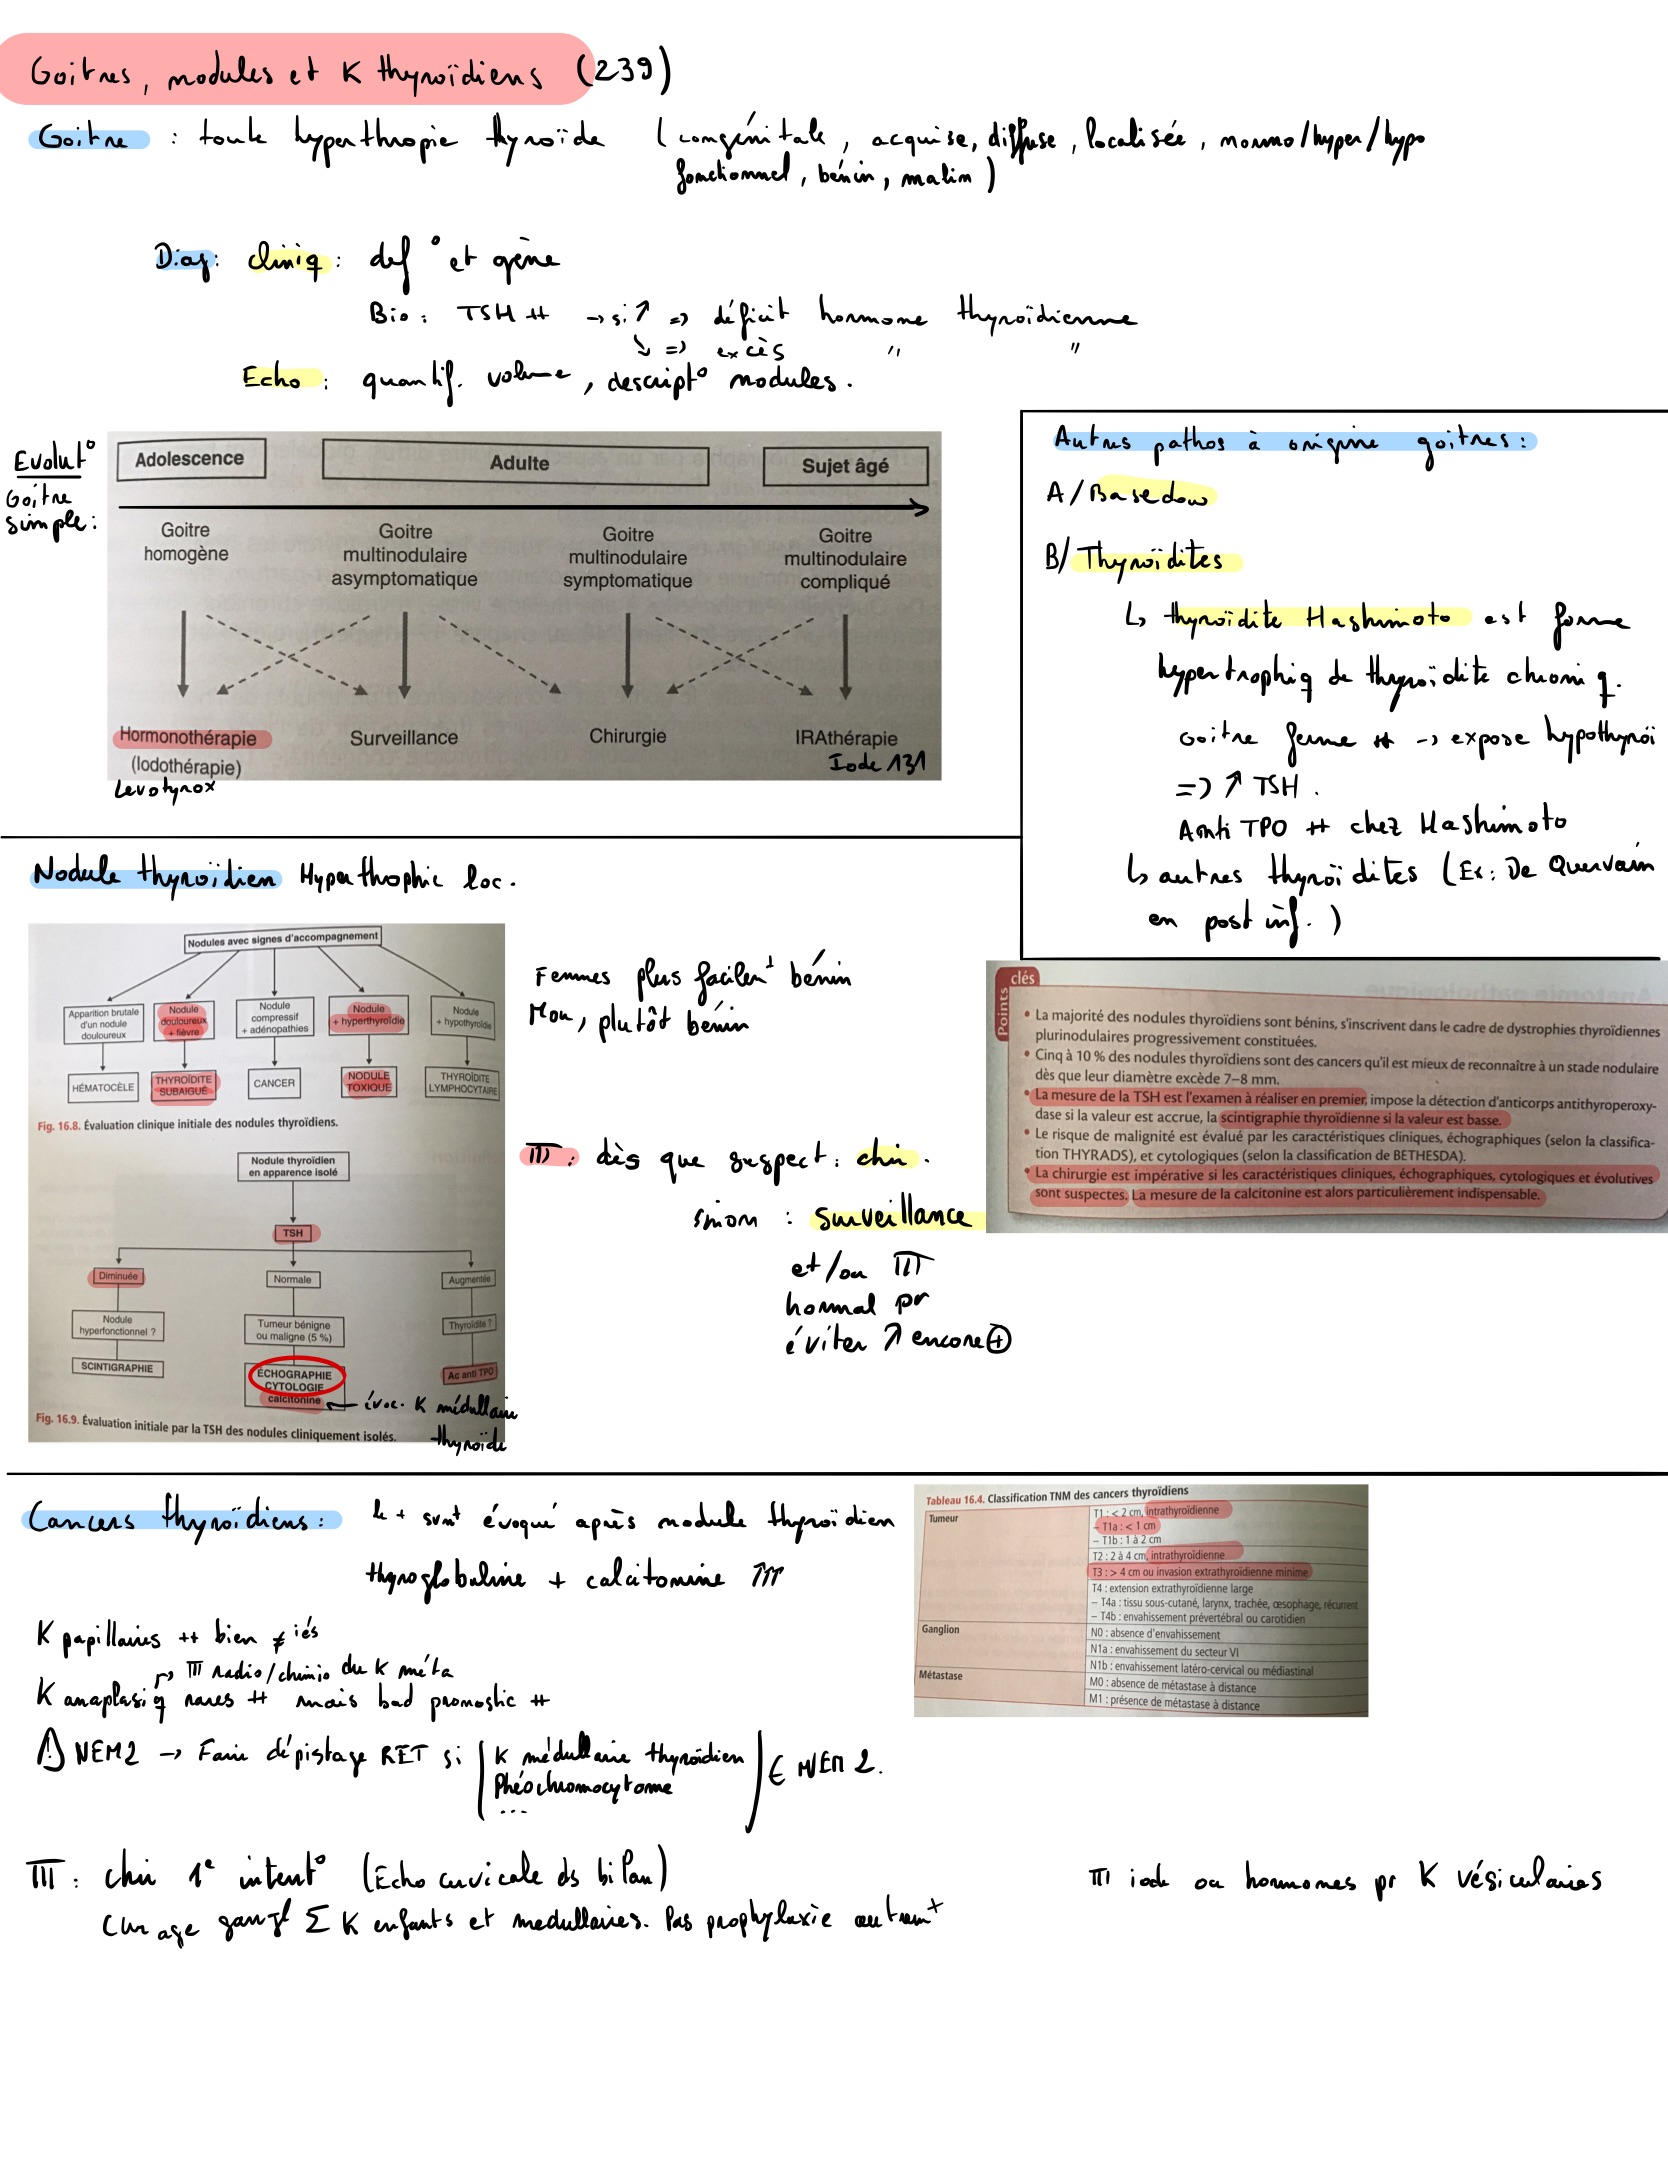 Goitres, nodules et K thyroïdiens (239)
Goitre : toute hyperthropie thyroïde (congénitale, acquise, diffuse, localisée, normo/hyper/hypo
fonctionnel, bénin, malin)
Diag: cliniq : def° et gène
Bio : TSH ++ -> si ↗ => déficit hormone thyroïdienne
↘ => excès " "
Echo : quantif. volume, descript° nodules.
Evolut°
Goitre
simple :
Adolescence
Adulte
Sujet âgé
Goitre
homogène
Goitre
multinodulaire
asymptomatique
Goitre
multinodulaire
symptomatique
Goitre
multinodulaire
compliqué
Hormonothérapie
(Iodothérapie)
Levotyrox
Surveillance
Chirurgie
IRAthérapie
Iode 131
Autres pathos à origine goitres :
A/ Basedow
B/ Thyroïdites
↳ thyroïdite Hashimoto est forme
hypertrophiq de thyroïdite chroniq.
Goitre ferme ++ -> expose hypothyroï
=> ↗ TSH.
Anti TPO ++ chez Hashimoto
↳ autres thyroïdites (Ex : De Quervain
en post inf.)
Nodule thyroïdien Hyperthrophie loc.
Nodules avec signes d'accompagnement
Apparition brutale
d'un nodule
douloureux
Nodule
douloureux
+ fièvre
Nodule
compressif
+ adénopathies
Nodule
+ hyperthyroïdie
Nodule
+ hypothyroïdie
HÉMATOCÈLE
THYROÏDITE
SUBAIGUË
CANCER
NODULE
TOXIQUE
THYROÏDITE
LYMPHOCYTAIRE
Fig. 16.8. Évaluation clinique initiale des nodules thyroïdiens.
Nodule thyroïdien
en apparence isolé
TSH
Diminuée
Normale
Augmentée
Nodule
hyperfonctionnel ?
Tumeur bénigne
ou maligne (5 %)
Thyroïdite ?
SCINTIGRAPHIE
ÉCHOGRAPHIE
CYTOLOGIE
calcitonine
Ac anti TPO
évoc. K médullaire
thyroïde
Fig. 16.9. Évaluation initiale par la TSH des nodules cliniquement isolés.
Femmes plus facilemt bénin
Mou, plutôt bénin
TTT : dès que suspect : chir.
sinon : surveillance
et/ou TTT
hormal pr
éviter ↗ encore ⊕
Points clés
• La majorité des nodules thyroïdiens sont bénins, s'inscrivent dans le cadre de dystrophies thyroïdiennes
plurinodulaires progressivement constituées.
• Cinq à 10 % des nodules thyroïdiens sont des cancers qu'il est mieux de reconnaître à un stade nodulaire
dès que leur diamètre excède 7–8 mm.
• La mesure de la TSH est l'examen à réaliser en premier, impose la détection d'anticorps antithyroperoxy-
dase si la valeur est accrue, la scintigraphie thyroïdienne si la valeur est basse.
• Le risque de malignité est évalué par les caractéristiques cliniques, échographiques (selon la classifica-
tion THYRADS), et cytologiques (selon la classification de BETHESDA).
• La chirurgie est impérative si les caractéristiques cliniques, échographiques, cytologiques et évolutives
sont suspectes. La mesure de la calcitonine est alors particulièrement indispensable.
Cancers thyroïdiens : le + svnt évoqué après nodule thyroïdien
thyroglobuline + calcitonine ↑↑↑
K papillaires ++ bien ≠iés
TTT radio/chimio du K méta
K anaplasiq rares ++ mais bad pronostic ++
⚠ NEM2 -> Faire dépistage RET si | K médullaire thyroïdien
Phéochromocytome
...
∈ NEM 2.
Tableau 16.4. Classification TNM des cancers thyroïdiens
Tumeur
T1 : < 2 cm, intrathyroïdienne
– T1a : < 1 cm
– T1b : 1 à 2 cm
T2 : 2 à 4 cm, intrathyroïdienne
T3 : > 4 cm ou invasion extrathyroïdienne minime
T4 : extension extrathyroïdienne large
– T4a : tissu sous-cutané, larynx, trachée, œsophage, récurrent
– T4b : envahissement prévertébral ou carotidien
Ganglion
N0 : absence d'envahissement
N1a : envahissement du secteur VI
N1b : envahissement latéro-cervical ou médiastinal
Métastase
M0 : absence de métastase à distance
M1 : présence de métastase à distance
TTT : chir 1e intent° (Echo cervicale ds bilan)
Curage gangl Σ K enfants et medullaires. Pas prophylaxie autremt
TTT iode ou hormones pr K vésiculaires